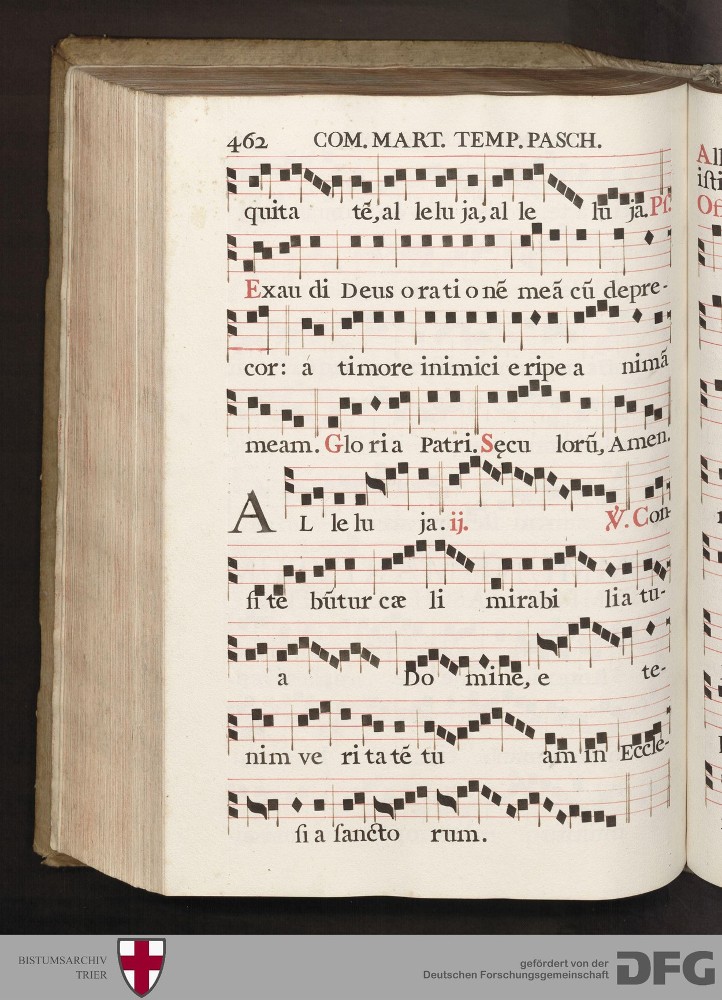 462 COM. MART. TEMP. PASCH.
quita tẽ, al le lu ja, al le lu ja. Ps.
Exau di Deus o ra ti o nẽ meã cũ depre-
cor: á timore inimici e ripe a nimã
meam. Glo ri a Patri. Sęcu lorũ, Amen.
A L le lu ja. ij. ℣. Con-
fi te bũtur cæ li mirabi lia tu-
a Do mine, e te-
nim ve ri ta tẽ tu am in Eccle-
ſi a ſancto rum.
All
iſti
Of
BISTUMSARCHIV
TRIER
gefördert von der
Deutschen Forschungsgemeinschaft
DFG